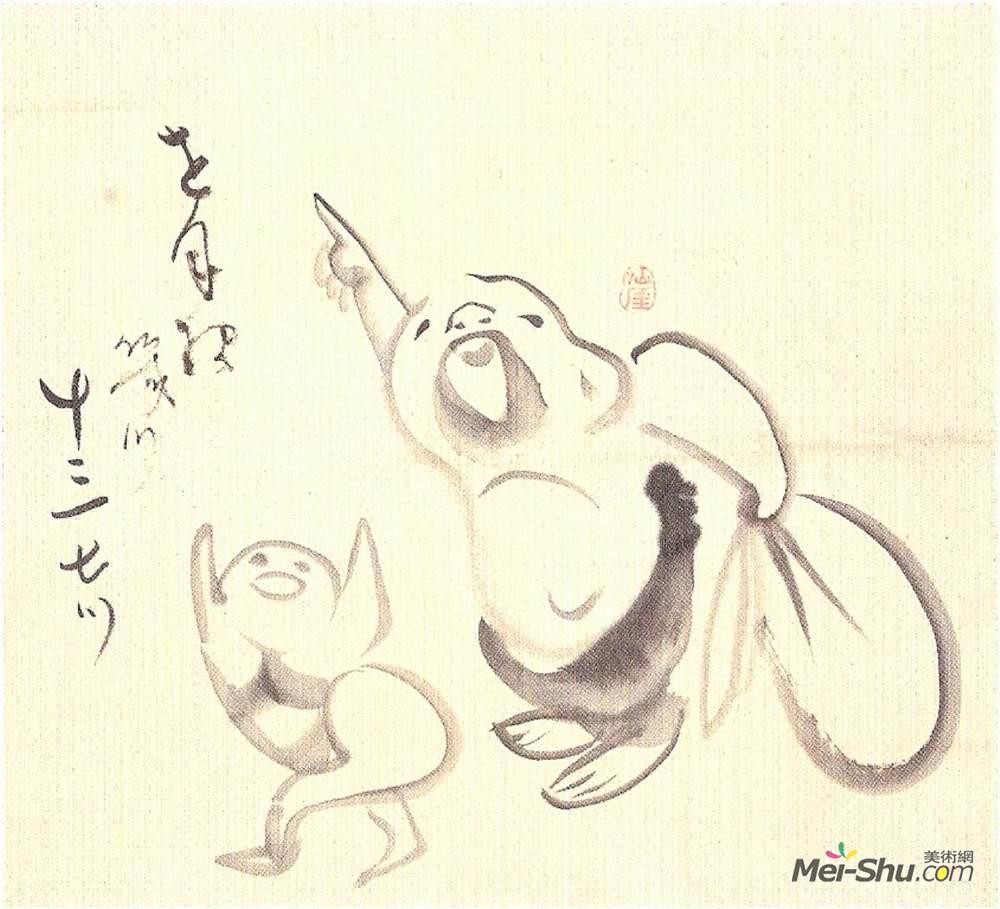 を月様
幾つ
十三七つ
仙厓
美術網
Mei-Shu.com